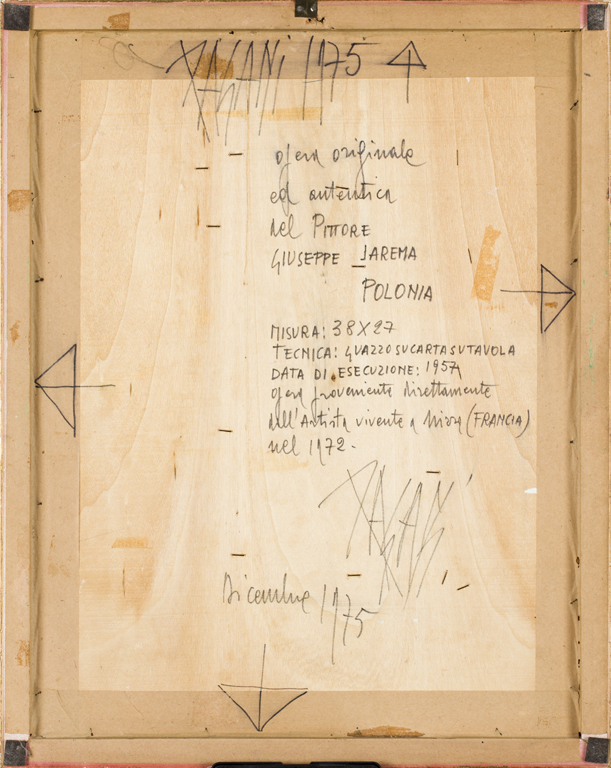 PAGANI 1975
opera originale
ed autentica
del PITTORE
GIUSEPPE JAREMA
POLONIA
MISURA: 38X27
TECNICA: GUAZZO SU CARTA SU TAVOLA
DATA DI ESECUZIONE: 1957
opera proveniente direttamente
dall'Artista vivente a Nizza (FRANCIA)
nel 1972.-
PAGANI
Dicembre 1975